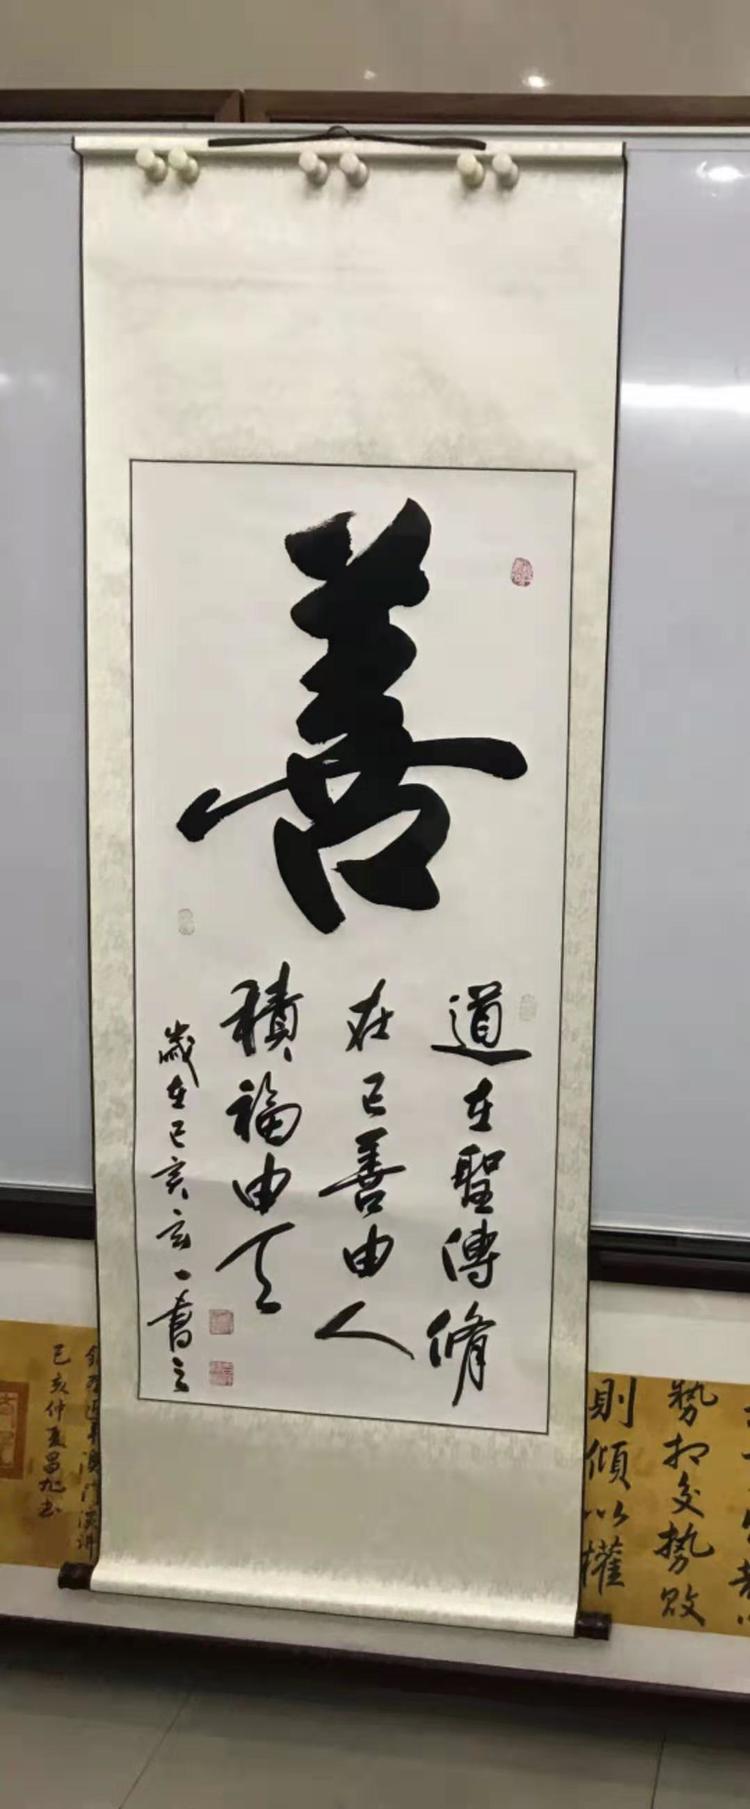 善
道在聖傳修
在己善由人
積福由天
歲在己亥玄一書之
則傾以權
勢相交勢敗
己亥仲夏昌旭书